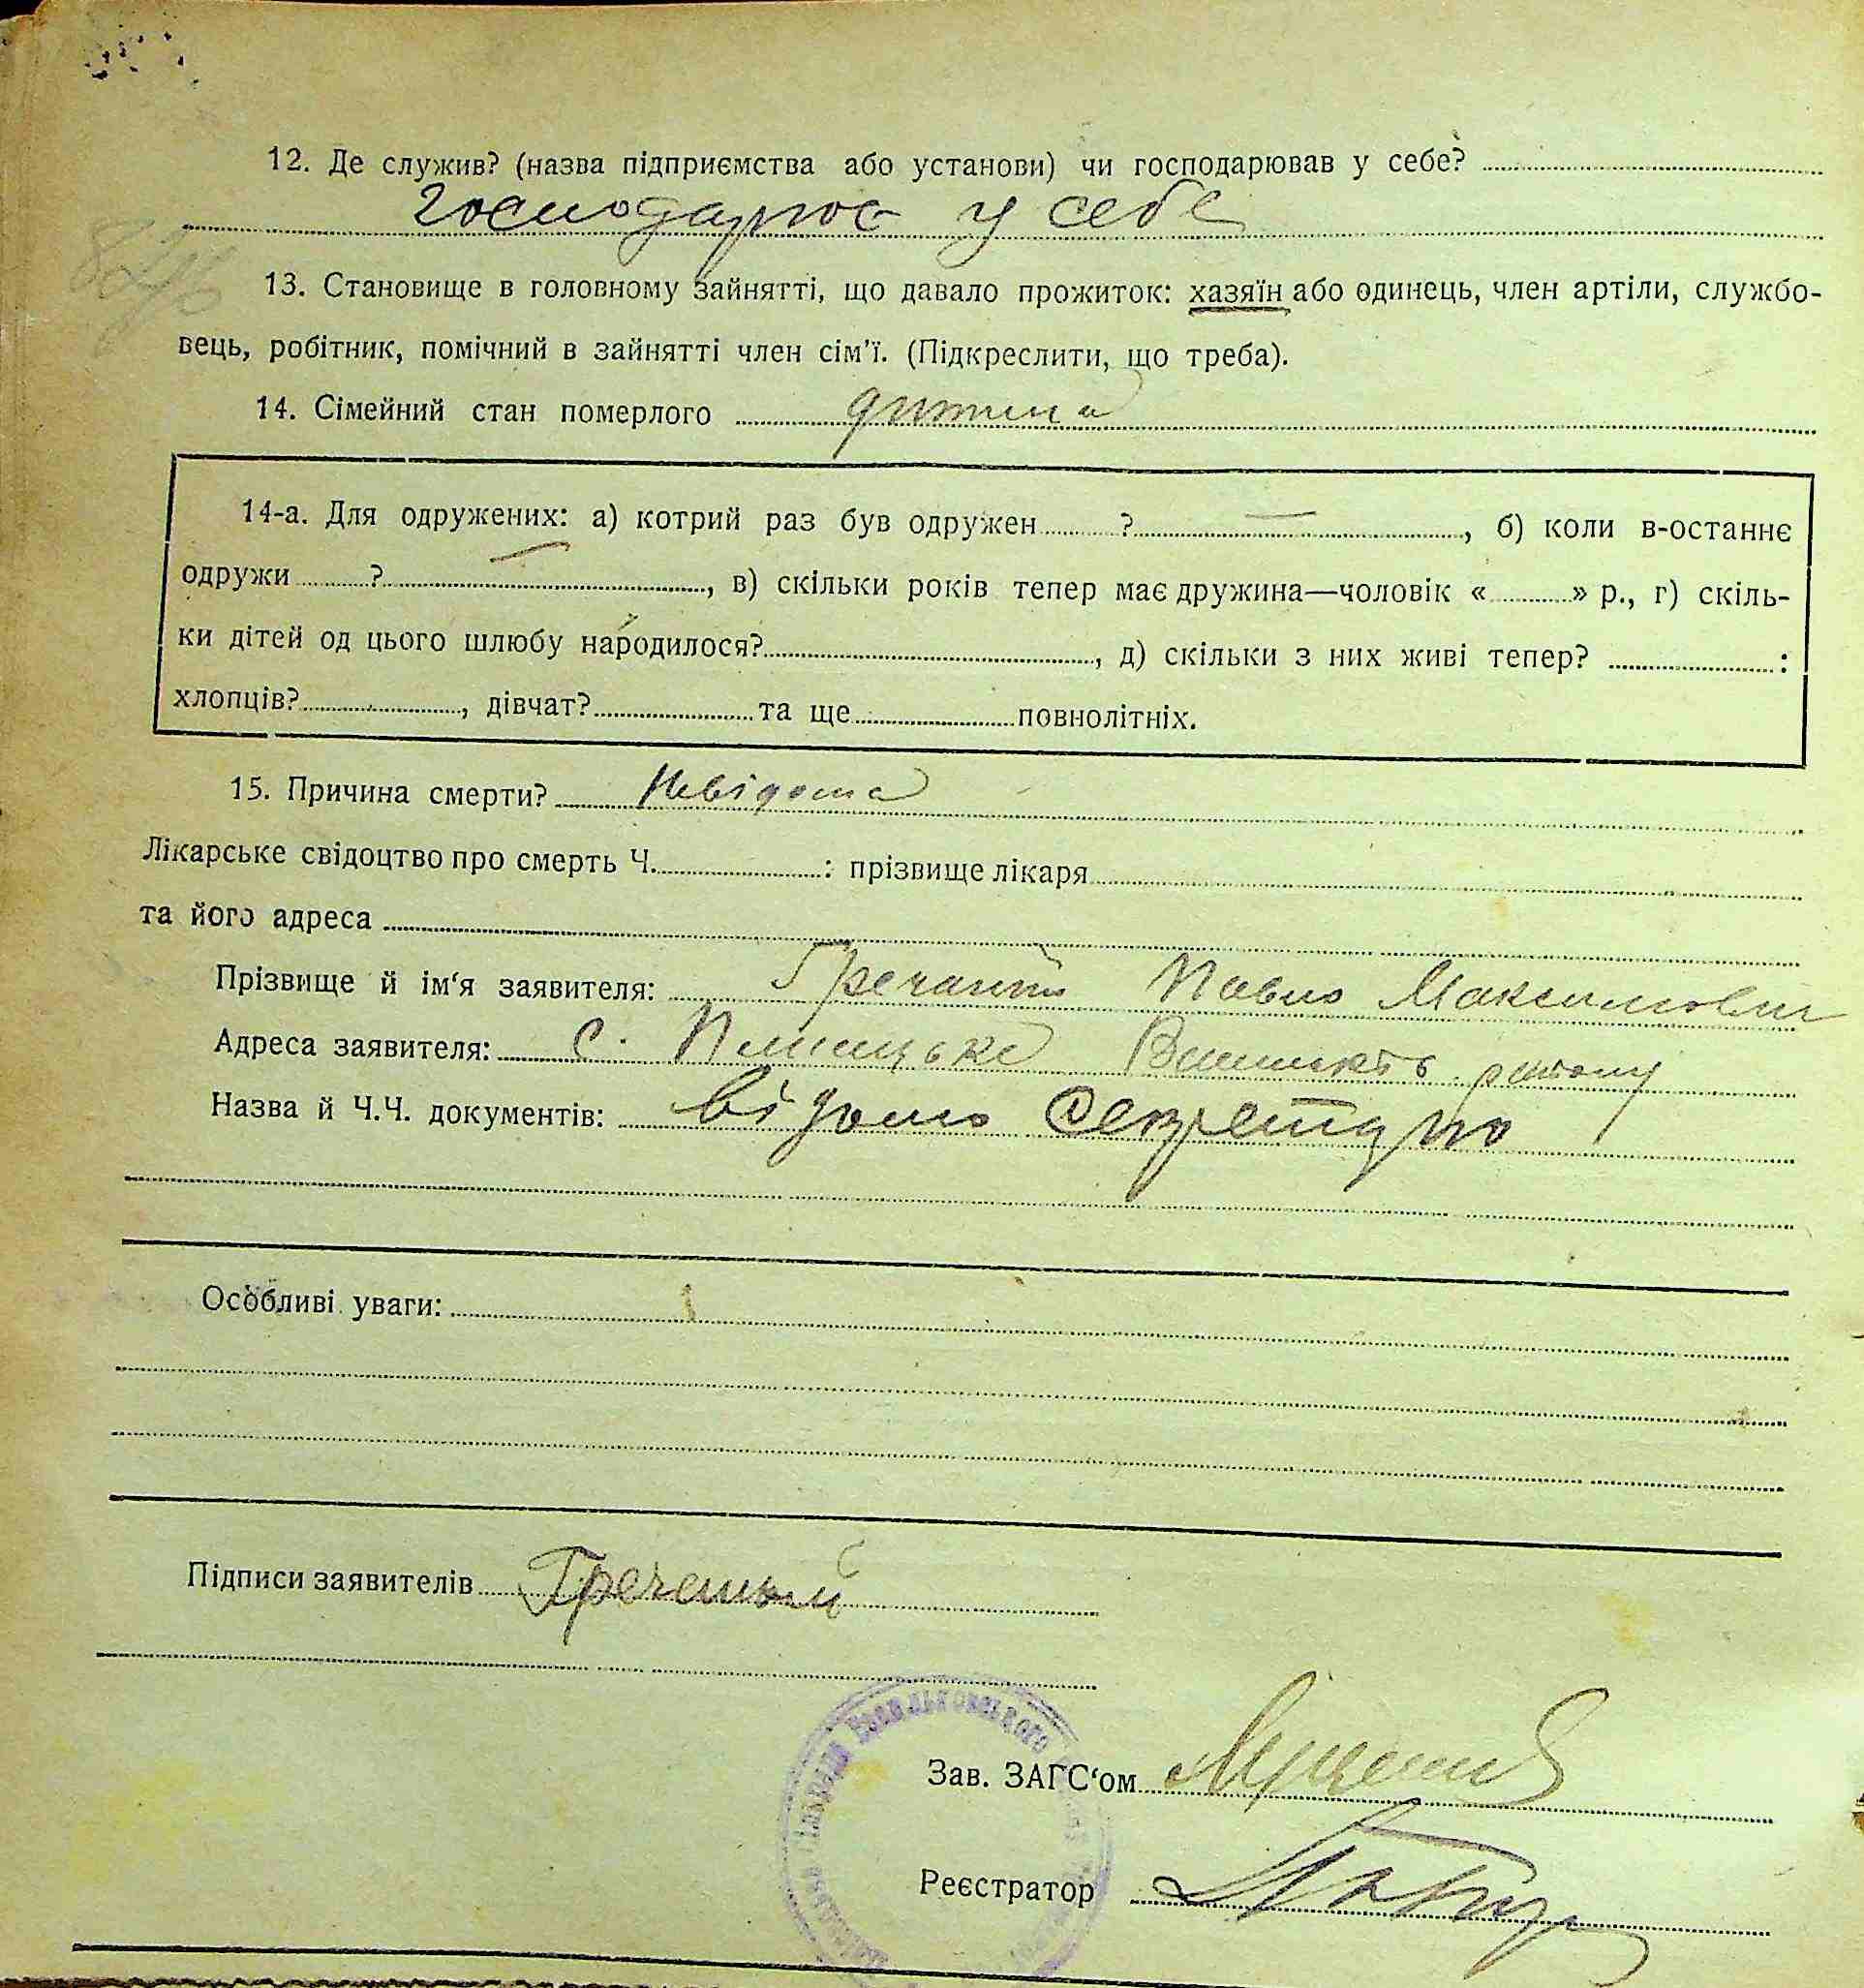 12. Де служив? (назва підприємства або установи) чи господарював у себе?
Господарює у себе
13. Становище в головному зайнятті, що давало прожиток: хазяїн або одинець, член артіли, службо-
вець, робітник, помічний в зайнятті член сім'ї. (Підкреслити, що треба).
14. Сімейний стан померлого дитина
14-а. Для одружених: а) котрий раз був одружен ? —, б) коли в-останнє
одружи ? —, в) скільки років тепер має дружина—чоловік « » р., г) скіль-
ки дітей од цього шлюбу народилося? , д) скільки з них живі тепер? :
хлопців? , дівчат? та ще повнолітніх.
15. Причина смерти? Невідома
Лікарське свідоцтво про смерть Ч. : прізвище лікаря
та його адреса
Прізвище й ім'я заявителя: Гречаний Павло Максимович
Адреса заявителя: с. району
Назва й Ч.Ч. документів: відомо секретарю
Особливі уваги:
Підписи заявителів Гречаный
Зав. ЗАГС'ом
Реєстратор